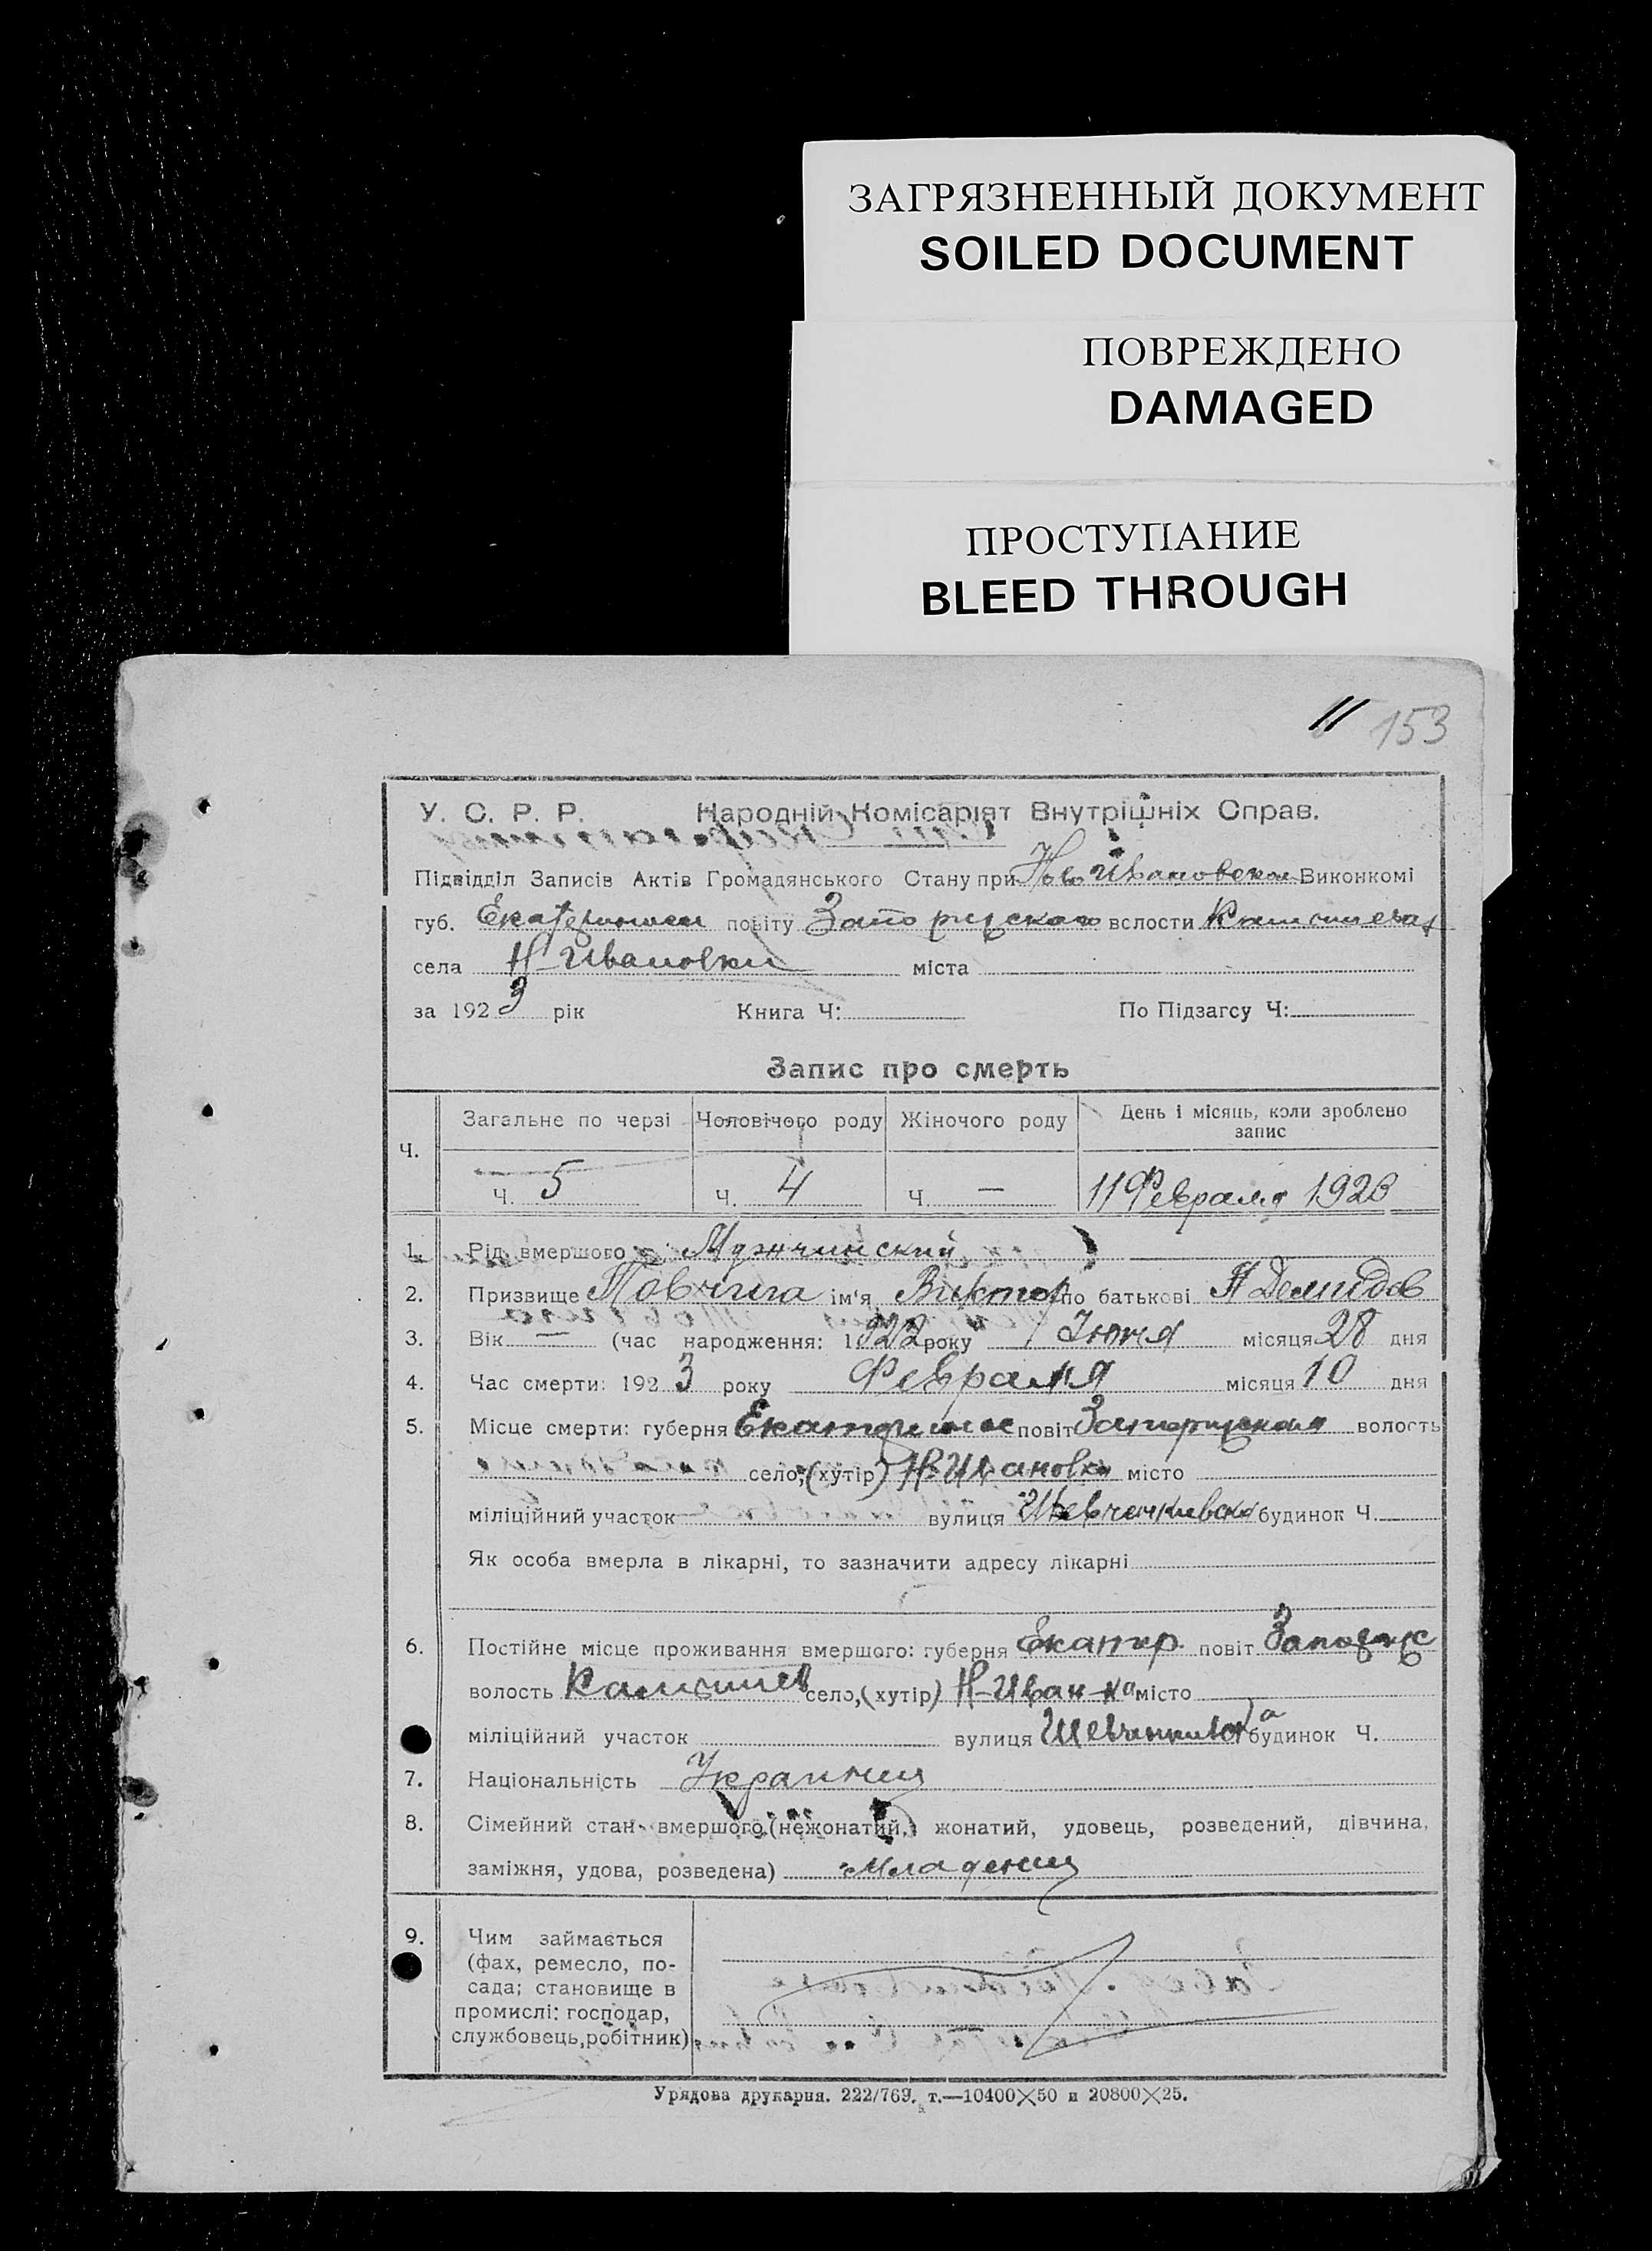 ЗАГРЯЗНЕННЫЙ ДОКУМЕНТ
SOILED DOCUMENT
ПОВРЕЖДЕНО
DAMAGED
ПРОСТУПАНИЕ
BLEED THROUGH
11 153
У. С. Р. Р. Народній Комісаріят Внутрішніх Справ.
Підвідділ Записів Актів Громадянського Стану при Ново Ивановском Виконкомі
губ. повіту Запорижского вслости
села Н-Ивановки міста
за 1923 рік Книга Ч: По Підзагсу Ч:
Запис про смерть
Ч. Загальне по черзі Чоловічого роду Жіночого роду День і місяць, коли зроблено запис
Ч. 5 Ч. 4 Ч. — 11 Февраля 1923
1. Рід вмершого Мужчинский
2. Призвище Товчига ім'я Виктор по батькові Демидов
3. Вік — (час народження: 1922 року Июля місяця 28 дня
4. Час смерти: 1923 року Февраля місяця 10 дня
5. Місце смерти: губерня повіт волость
село, (хутір) Н-Ивановка місто
міліційний участок вулиця будинок Ч.
Як особа вмерла в лікарні, то зазначити адресу лікарні
6. Постійне місце проживання вмершого: губерня Екатер. повіт
волость село, (хутір) Н-Иван-ка місто
міліційний участок вулиця будинок Ч.
7. Національність Украинец
8. Сімейний стан вмершого (нежонатий, жонатий, удовець, розведений, дівчина,
заміжня, удова, розведена) младенец
9. Чим займається
(фах, ремесло, по-
сада; становище в
промислі: господар,
службовець, робітник)
Урядова друкарня. 222/769. т.—10400×50 и 20800×25.